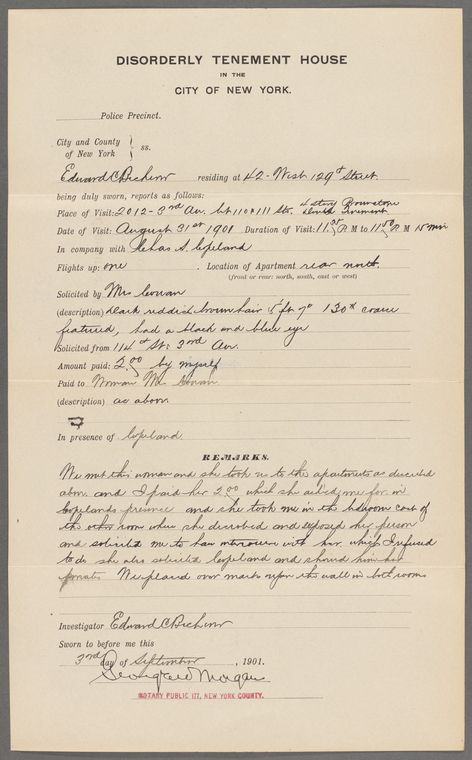 DISORDERLY TENEMENT HOUSE
IN THE
CITY OF NEW YORK.
Police Precinct.
City and County
of New York } ss.
Edward C. residing at 42 West 129th Street
being duly sworn, reports as follows:
4 story Brownstone
Place of Visit: 2012-3rd Av. bt 110 & 111 Sts. Tenement
Date of Visit: August 31st 1901 Duration of Visit: 11. P.M to 11. P.M 15 min
In company with A. Copeland
Flights up: one . Location of Apartment rear north.
(front or rear: north, south, east or west)
Solicited by Mrs Cowan
(description) Dark reddish brown hair 5 ft 7" 130# coarse
featured, had a black and blue eye
Solicited from 114th St: 3rd Av.
Amount paid: 2.00 by myself
Paid to Woman Mrs. Cowan
(description) as above.
In presence of Copeland.
REMARKS.
We met this woman and she took us to the apartments as described
above and I paid her 2.00 which she asked me for in
Copelands presence and she took me in the bedroom east of
the other room where she disrobed and exposed her person
and solicited me to have intercourse with her which I refused
to do she also solicited Copeland and showed him her
privates We placed our marks upon the wall in both rooms
Investigator Edward C.
Sworn to before me this
3rd day of September , 1901.
Morgan
NOTARY PUBLIC 177, NEW YORK COUNTY.